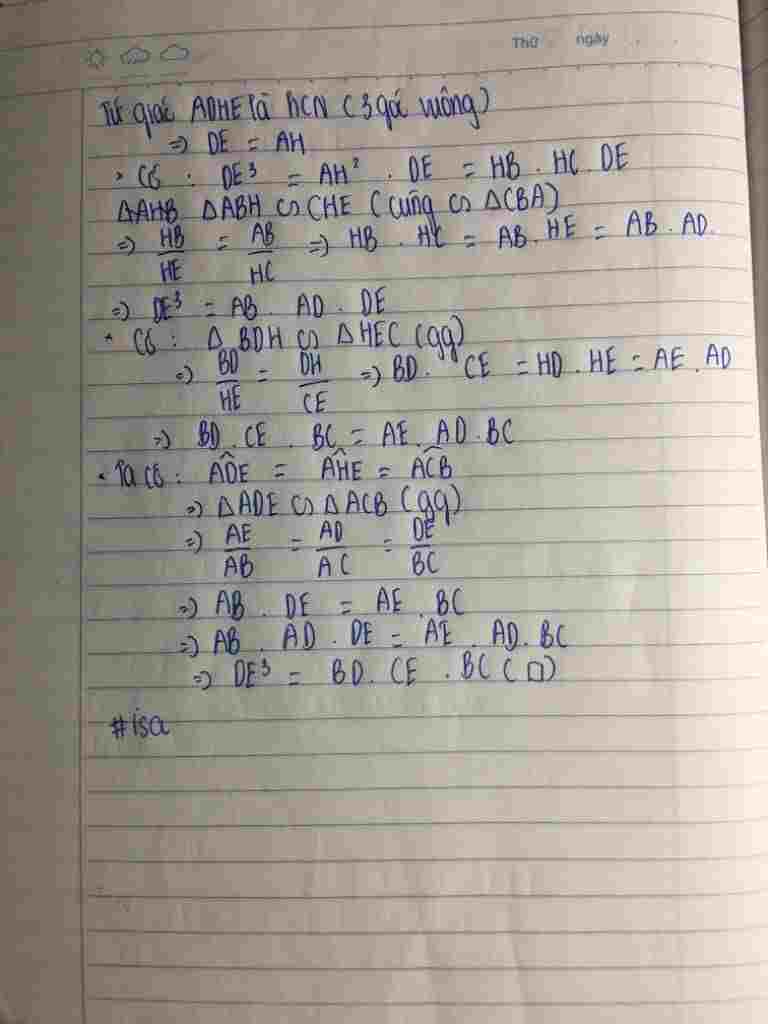 Thứ ngày
Tứ giác ADHE là hCN (3 góc vuông)
=> DE = AH
• Có : DE³ = AH² . DE = HB . HC . DE
ΔAHB ΔABH ∽ CHE (cùng ∽ Δ CBA)
=> HB/HE = AB/HC => HB . HC = AB . HE = AB . AD.
=> DE³ = AB . AD . DE
• Có : Δ BDH ∽ Δ HEC (gg)
=> BD/HE = DH/CE => BD . CE = HD . HE = AE . AD
=> BD . CE . BC = AE . AD . BC
• Ta có : ADÊ = AHÊ = ACB̂
=> ΔADE ∽ ΔACB (gg)
=> AE/AB = AD/AC = DE/BC
=> AB . DE = AE . BC
=> AB . AD . DE = AE . AD . BC
=> DE³ = BD . CE . BC (□)
#isa